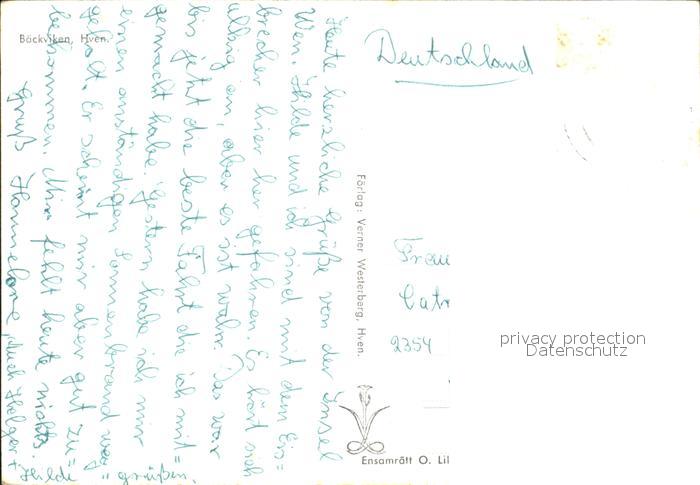 Böckviken, Hven.
Heute herzliche Grüße von der Insel
Wen. Hilde und ich sind mit dem Eis=
brecher hier her gefahren. Es hört sich
ulkig an, aber es ist wahr. Das war
bis jetzt die beste Fahrt die ich mit=
gemacht habe. Gestern habe ich mir
einen anständigen Sonnenbrand weg=
geholt. Er scheint mir aber gut zu=
bekommen. Mir fehlt heute nichts.
Gruß Hannelore, auch Holger +
Hilde grüßen.
Förlag: Verner Westerberg, Hven.
Deutschland
Frau
Catr
2354
privacy protection
Datenschutz
Ensamrätt O. Lil